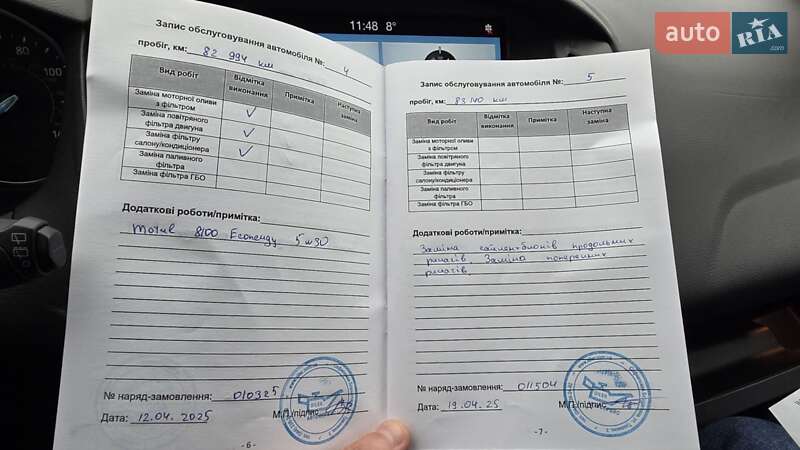 11:48 8°
auto RIA.com
80
100
Запис обслуговування автомобіля №: 4
пробіг, км: 82 994 км
Вид робіт Відмітка виконання Примітка Наступна заміна
Заміна моторної оливи з фільтром ✓
Заміна повітряного фільтра двигуна ✓
Заміна фільтру салону/кондиціонера ✓
Заміна паливного фільтра
Заміна фільтра ГБО
Додаткові роботи/примітка:
Motul 8100 Econergy 5w30
№ наряд-замовлення: 010325
Дата: 12.04.2025 М.П./підпис
- 6 -
Запис обслуговування автомобіля №: 5
пробіг, км: 83 140 км
Вид робіт Відмітка виконання Примітка Наступна заміна
Заміна моторної оливи з фільтром
Заміна повітряного фільтра двигуна
Заміна фільтру салону/кондиціонера
Заміна паливного фільтра
Заміна фільтра ГБО
Додаткові роботи/примітка:
Заміна сайлентблоків продольних
ричагів. Заміна поперечних
ричагів.
№ наряд-замовлення: 011504
Дата: 19.04.25 М.П./підпис
- 7 -